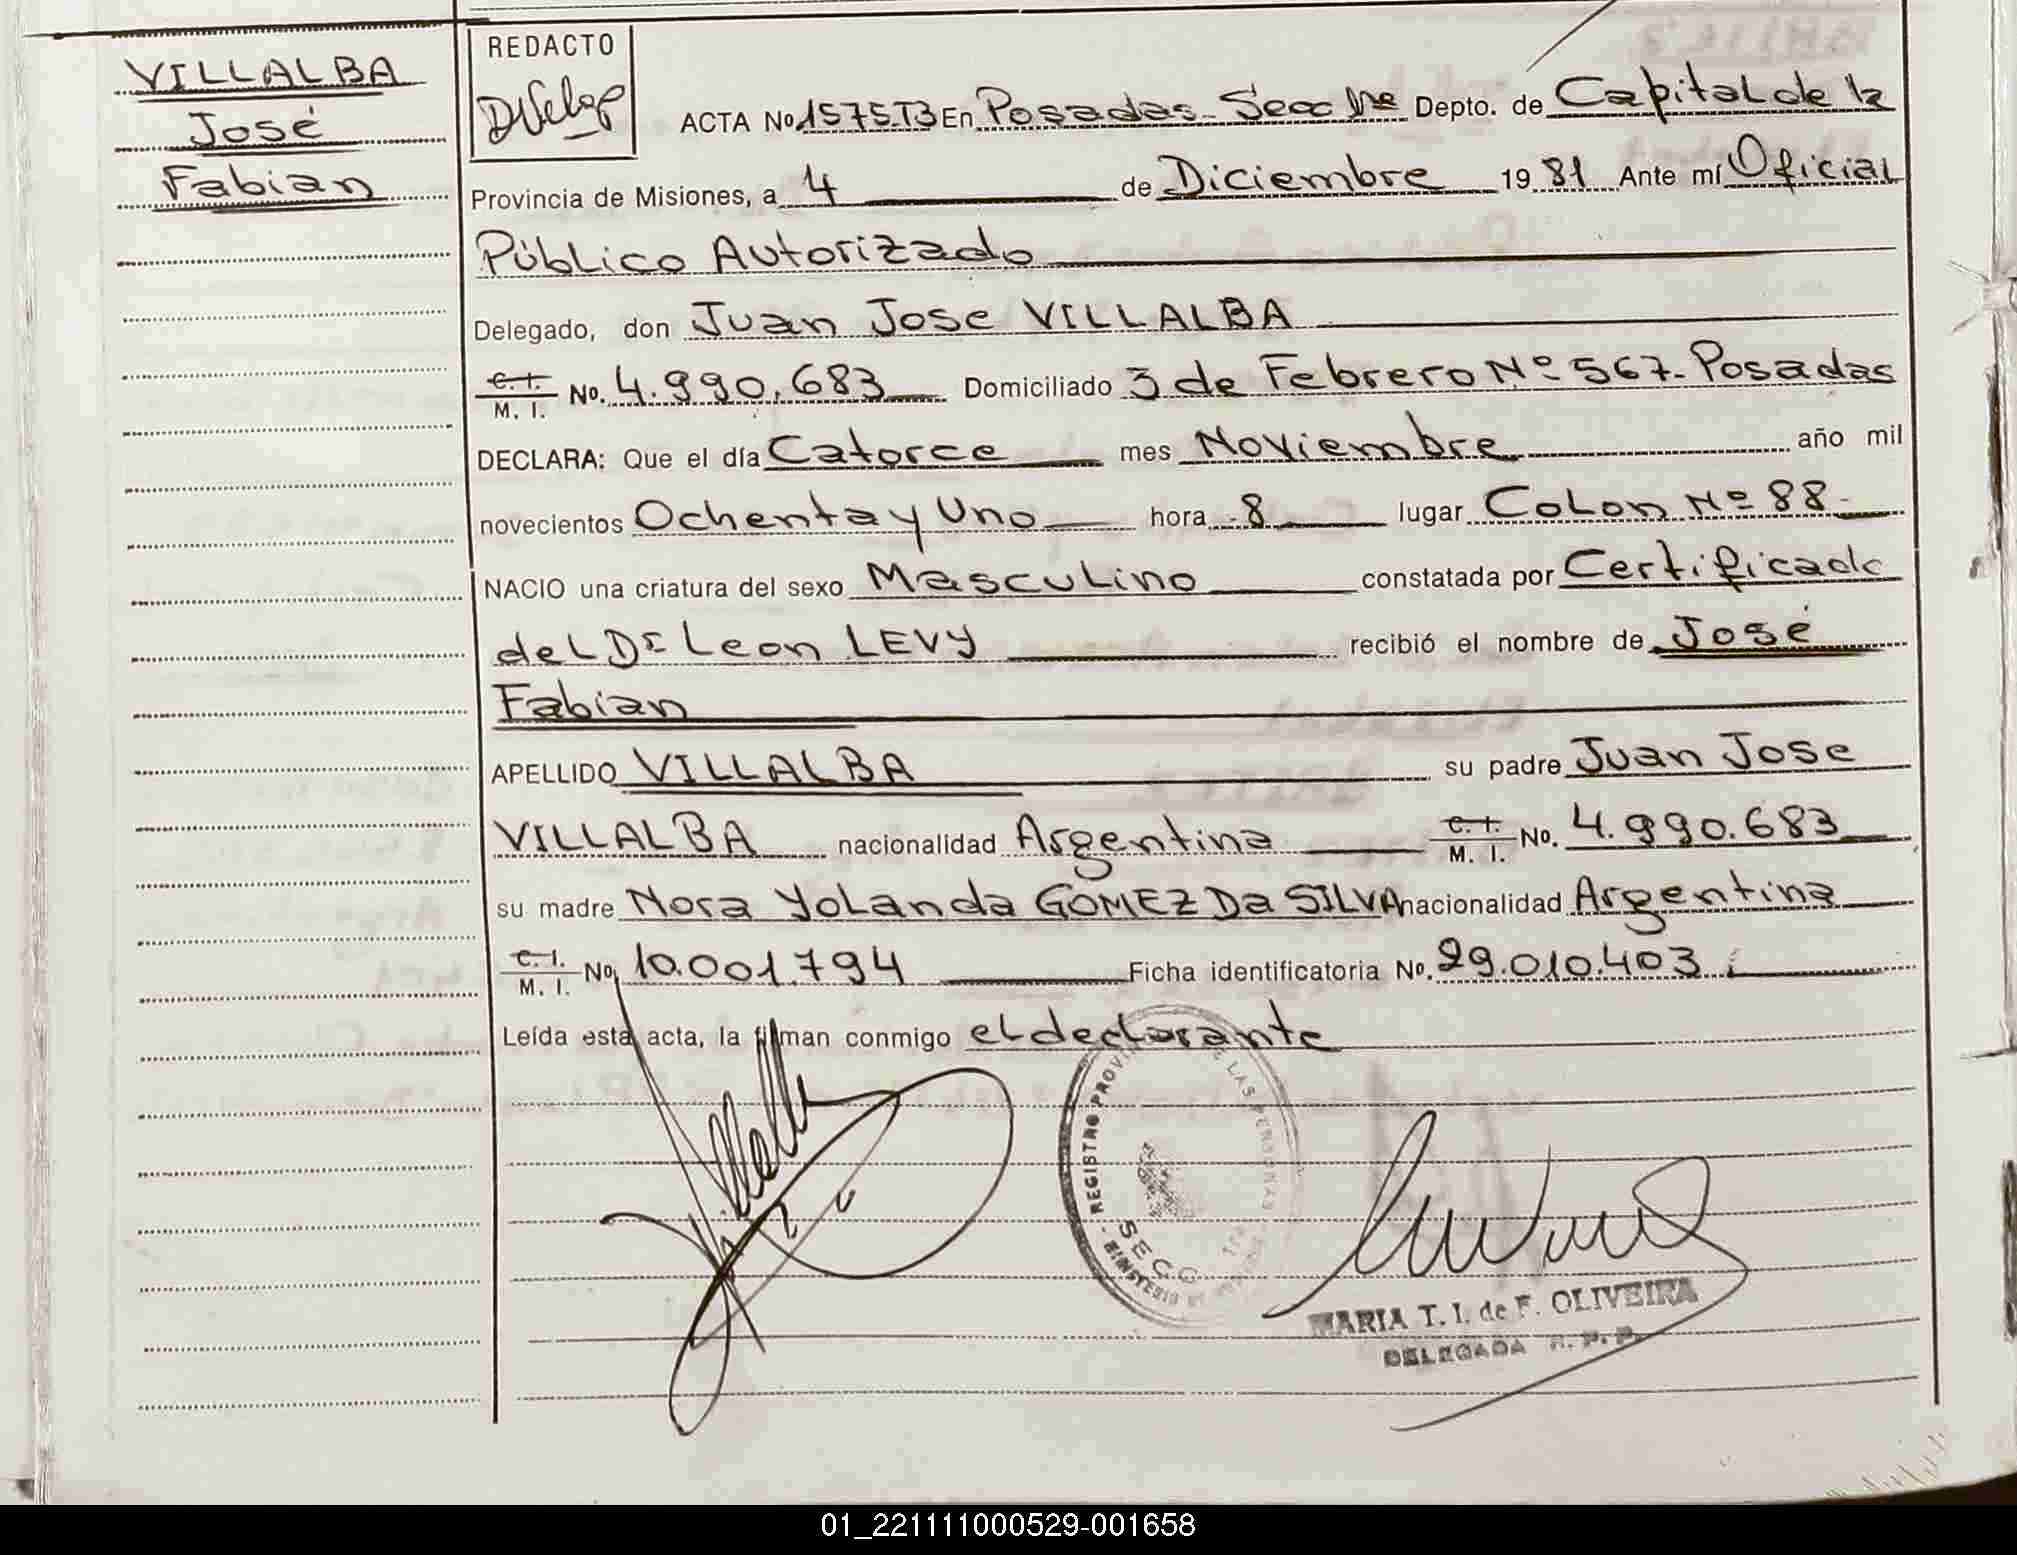 VILLALBA
José
Fabian
REDACTO
ACTA No 1575T3 En Posadas - Secc 1ra Depto. de Capital de la
Provincia de Misiones, a 4 de Diciembre 1981 Ante mí Oficial
Público Autorizado
Delegado, don Juan Jose VILLALBA
C. I. M. I. No. 4.990.683 Domiciliado 3 de Febrero Nº 567- Posadas
DECLARA: Que el día Catorce mes Noviembre año mil
novecientos Ochenta y Uno hora 8 lugar Colon Nº 88-
NACIO una criatura del sexo Masculino constatada por Certificado
del Dr Leon LEVY recibió el nombre de José
Fabian
APELLIDO VILLALBA su padre Juan Jose
VILLALBA nacionalidad Argentina C. I. M. I. No. 4.990.683
su madre Nora Yolanda GOMEZ Da SILVA nacionalidad Argentina
C. I. M. I. No 10.001.794 Ficha identificatoria No. 29.010.403
Leída esta acta, la firman conmigo el declarante
REGISTRO LAS PERSONAS
SECC
MARIA T. I. de F. OLIVEIRA
DELEGADA R. P. P.
01_221111000529-001658